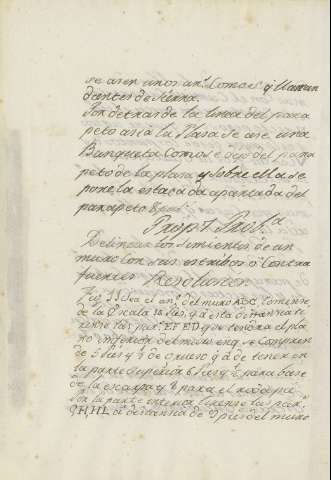 se asen unos an.s Como s. y llaman
dantes de sierra
Por detras de la linea del para
peto asia la Plasa se ase una
Banqueta Como se dijo del para
peto de la plasa y sobre ella se
pone la estacada apartada del
parapeto 8 pies
Prop.n 7 Prob.a
Delinear los Simientos de un
muro con sus estribos o Contra
fuertes Resolucion
Sea el an.o del muro ABC tomense
de la Escala pies, y a esta distancia ti
rense las par.s EF ED y se tendra el pla
no inferior del muro en q. se Comprenden
de 5 pies y de grueso q. a de tener en
la parte superior 6 pies y para base
de la escarpa y para el
Por la parte interior tirense las par.s
GH HL a distancia de pies del muro